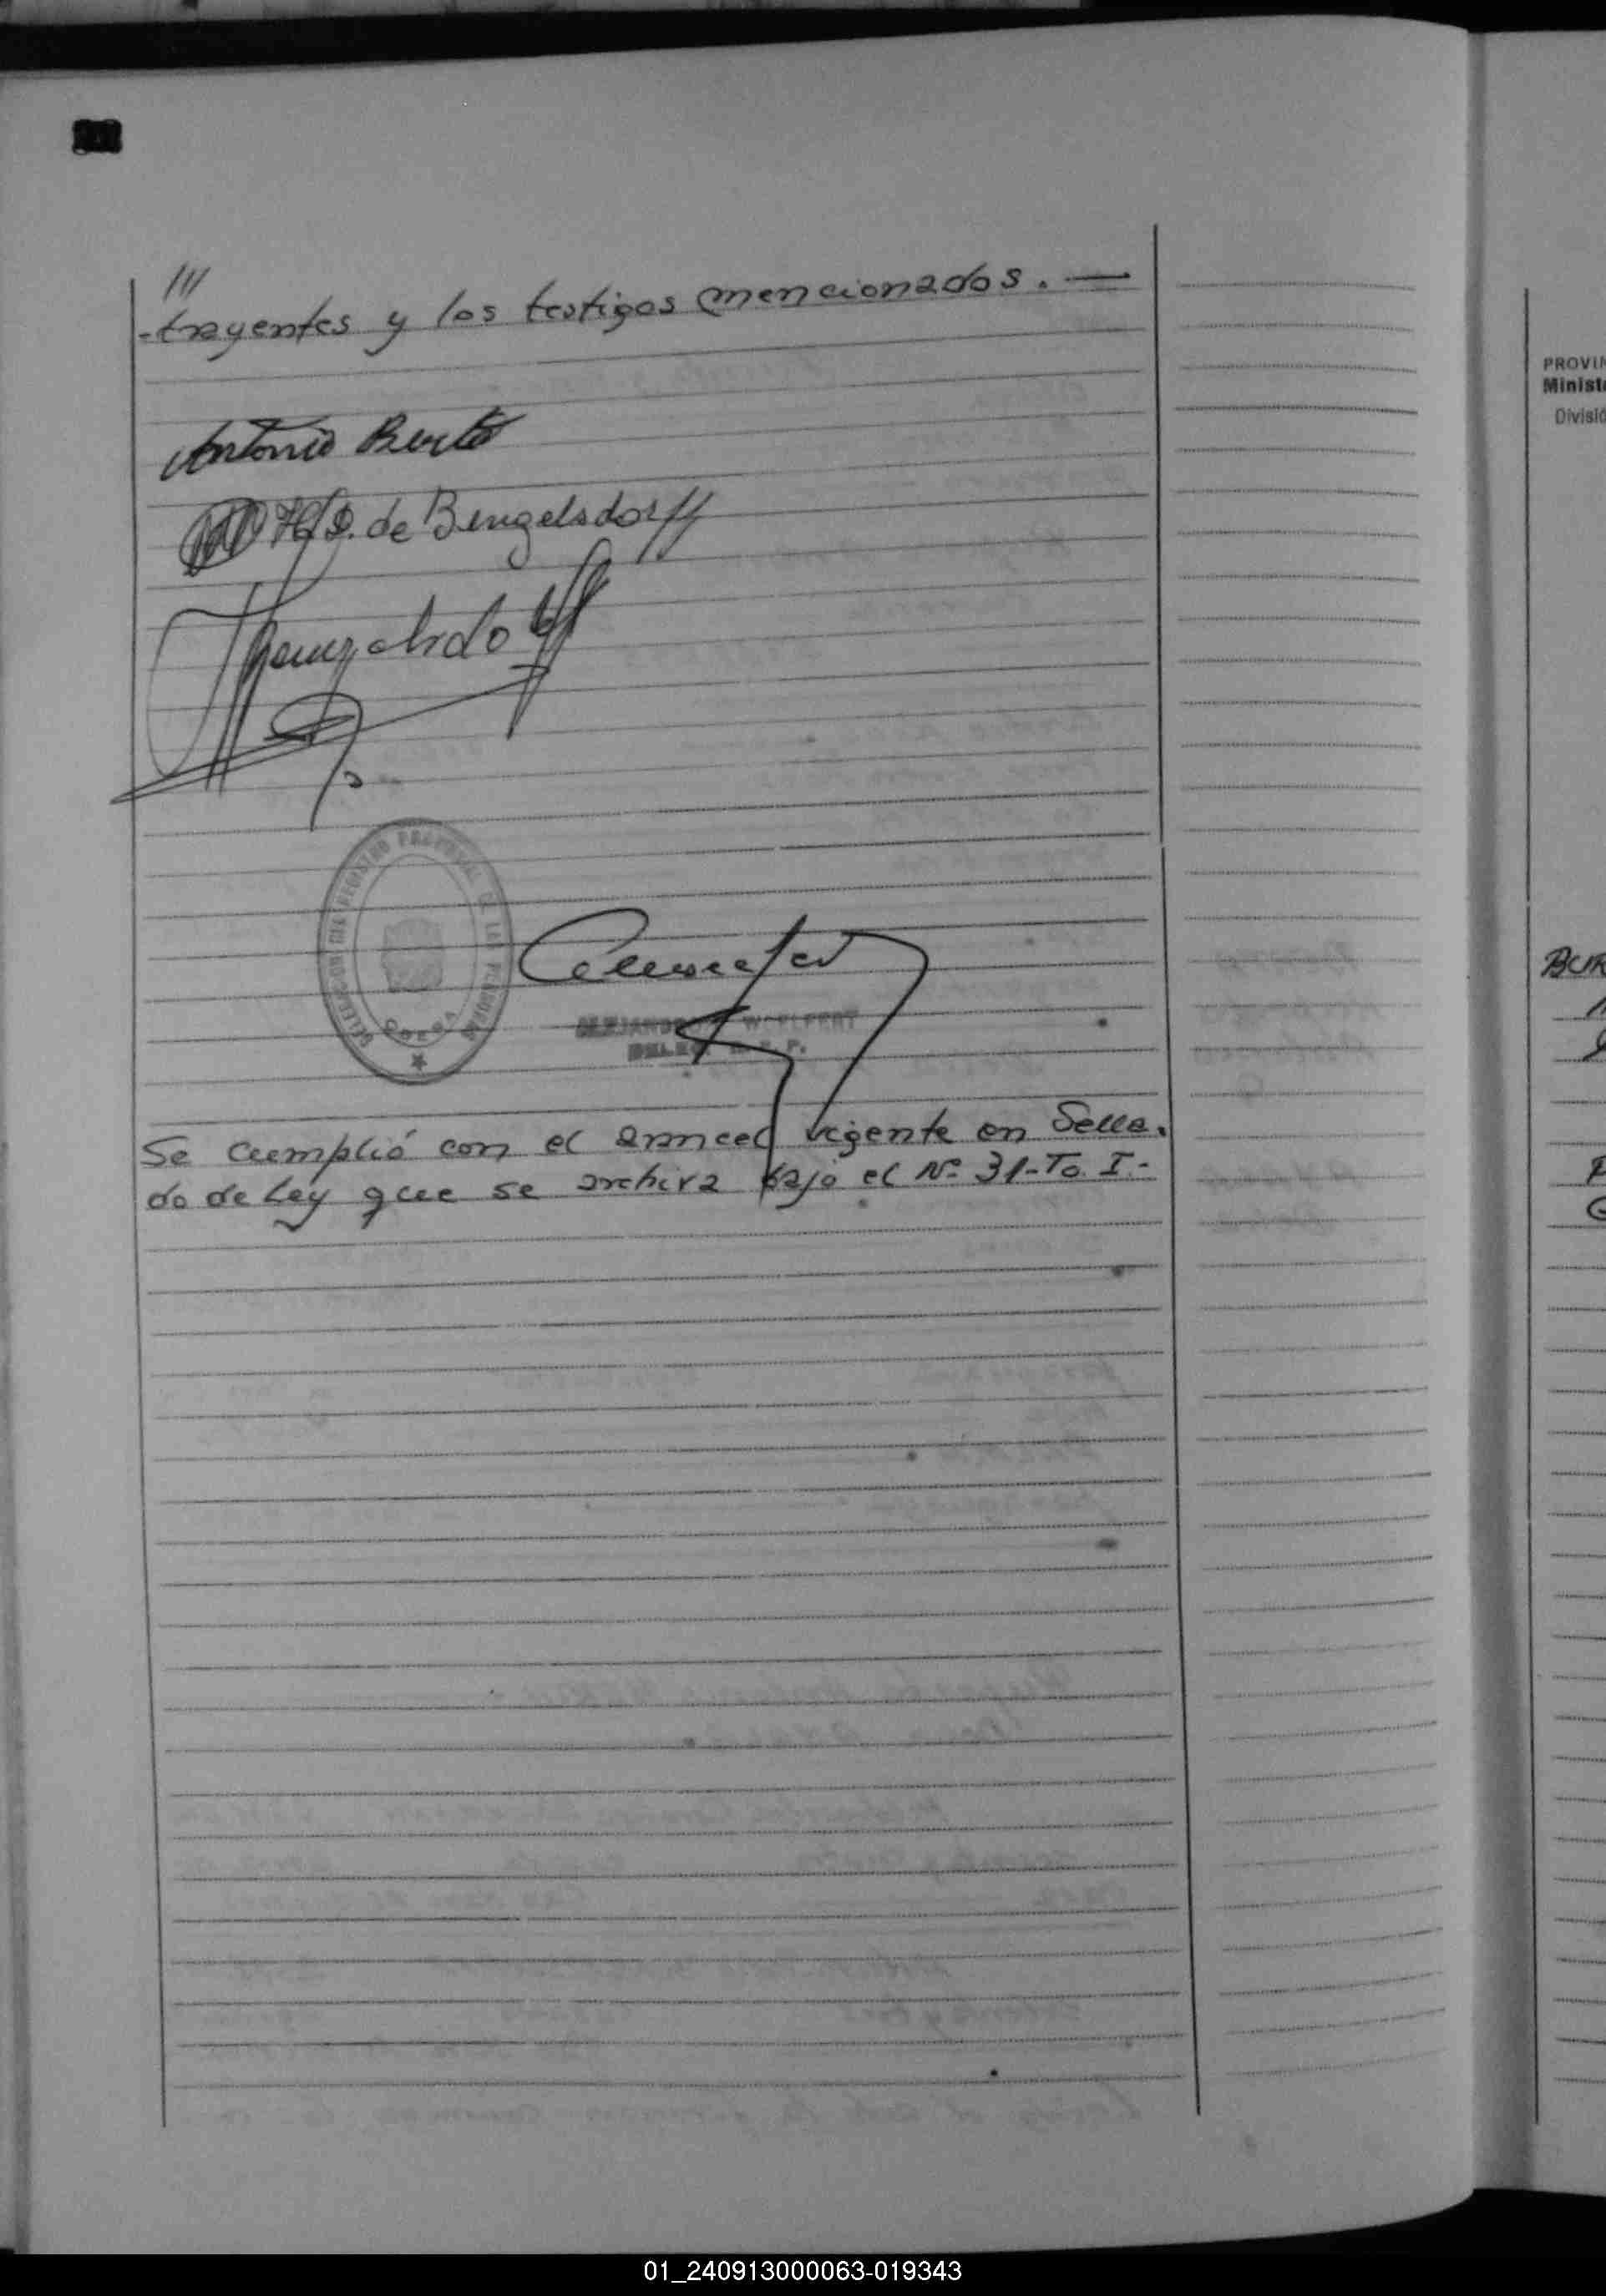 ///
-trayentes y los testigos mencionados. —
Antonio
de Bengelsdorff
Bengelsdorff
REGISTRO PROVINCIAL DE LAS PERSONAS
ALEJANDRO WOELFERT
R. P.
Se cumplió con el arancel vigente en Sella.
do de Ley que se archiva bajo el Nº 31-To. I.-
PROVIN
Ministe
Divisió
BUR
01_240913000063-019343